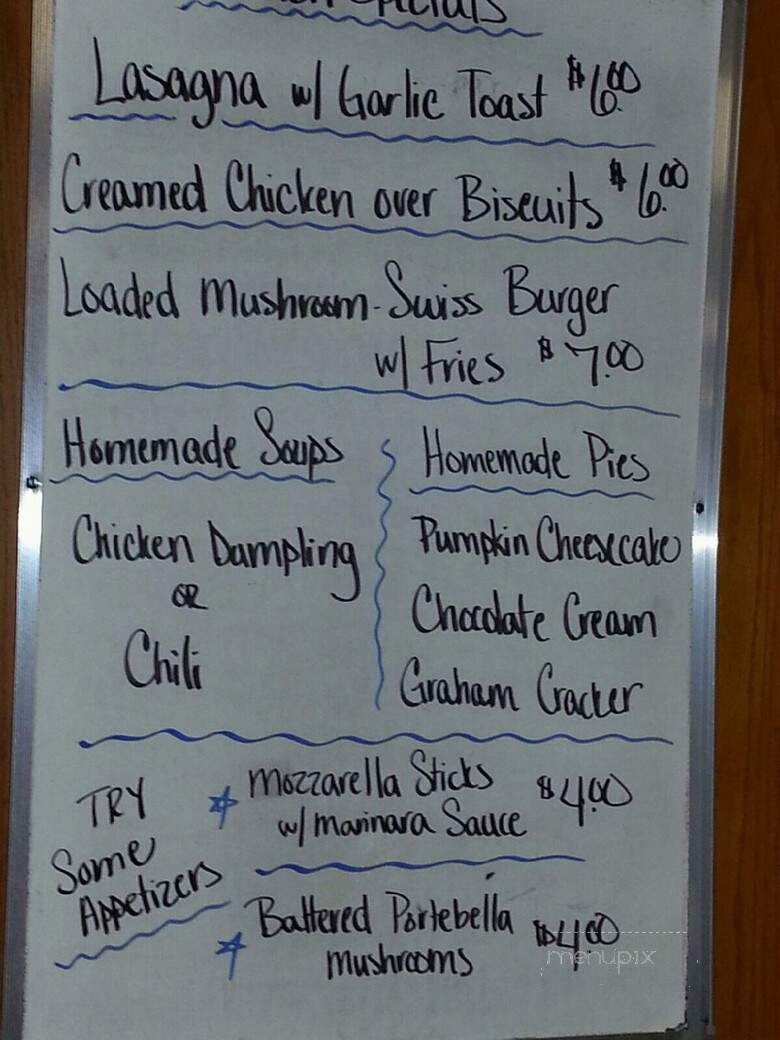 Specials
Lasagna w/ Garlic Toast $6.00
Creamed Chicken over Biscuits $6.00
Loaded Mushroom-Swiss Burger
w/ Fries $7.00
Homemade Soups
Chicken Dumpling
OR
Chili
Homemade Pies
Pumpkin Cheesecake
Chocolate Cream
Graham Cracker
TRY
Some
Appetizers
Mozzarella Sticks
w/ marinara Sauce $4.00
Battered Portebella
mushrooms $4.00
menupix